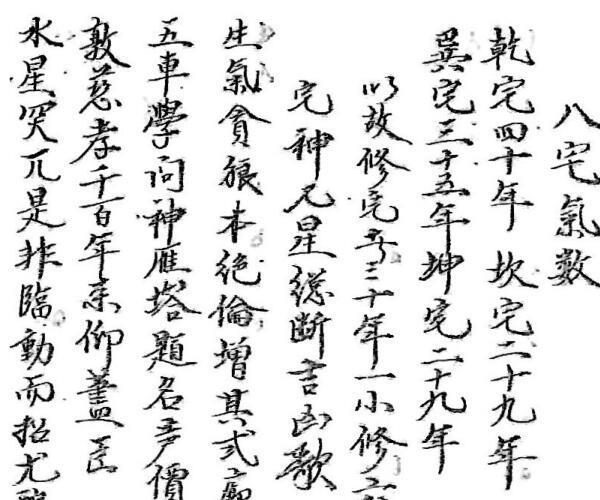 八宅氣數
乾宅四十年 坎宅二十九年
巽宅三十五年坤宅二十九年
以故修宅者三十年一小修六
宅神九星總斷吉凶歌
生氣貪狼本絕倫增其式
五車學問神雁塔題名聲價
敦慈孝千百年來仰藎臣
水星哭兀是非臨動而招尤